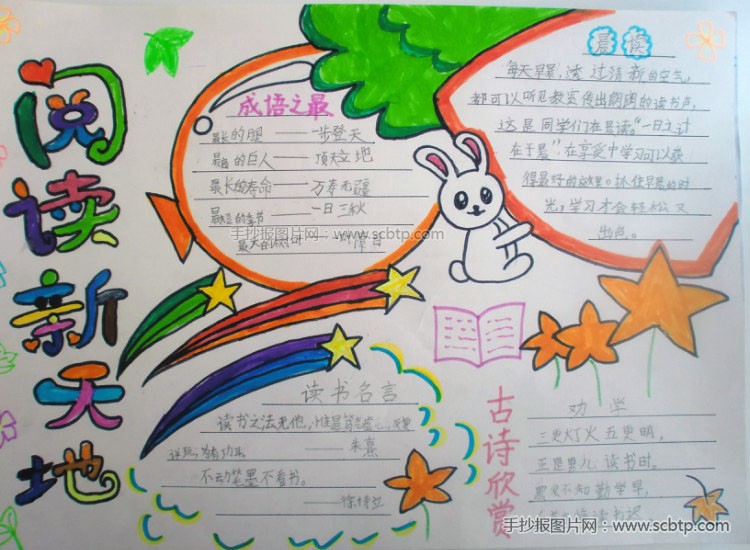 阅读新天地
成语之最
最长的腿——一步登天
最高的巨人——顶天立地
最长的寿命——万寿无疆
最短的季节——一日三秋
手抄报图片网：www.scbtp.com
晨读
每天早晨，透过清新的空气，
都可以听见教室传出朗朗的读书声，
这是同学们在晨读。“一日之计
在于晨”，在享受中学习可以获
得最好的效果。抓住早晨的时
光，学习才会轻松又
出色。
读书名言
读书之法无他，惟是笃志虚心，反复
详玩，为有功耳
——朱熹
不动笔墨不看书。
——徐特立
古诗欣赏
劝学
三更灯火五更明，
正是男儿读书时。
黑发不知勤学早，
手抄报图片网：www.scbtp.com